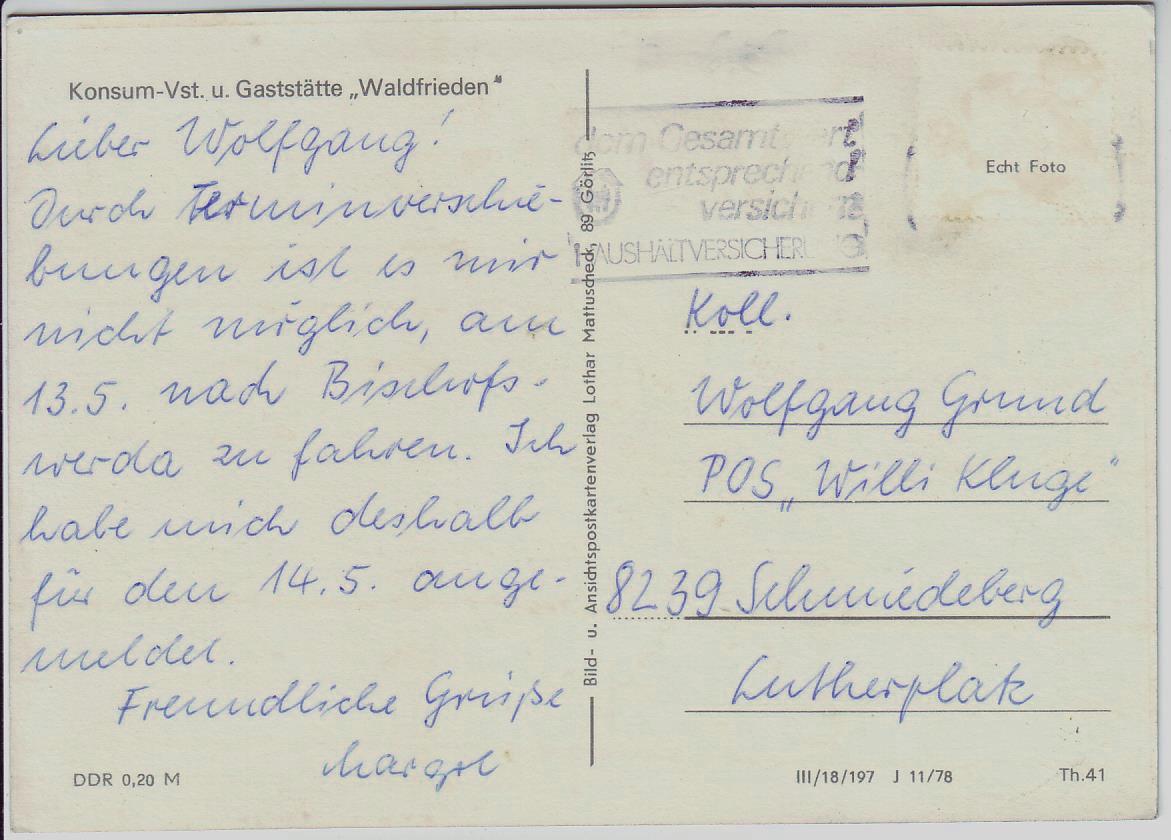 Konsum-Vst. u. Gaststätte „Waldfrieden"
Lieber Wolfgang!
Durch Terminverschie-
bungen ist es mir
nicht möglich, am
13.5. nach Bischofs-
werda zu fahren. Ich
habe mich deshalb
für den 14.5. ange-
meldet.
Freundliche Grüße
Margot
DDR 0,20 M
Bild- u. Ansichtspostkartenverlag Lothar Mattuscheck, 89 Görlitz
dem Gesamtwert
entsprechend
versichern
HAUSHALTVERSICHERUNG
Echt Foto
Koll.
Wolfgang Grund
POS „Willi Kluge"
8239 Schmiedeberg
Lutherplatz
III/18/197 J 11/78
Th.41